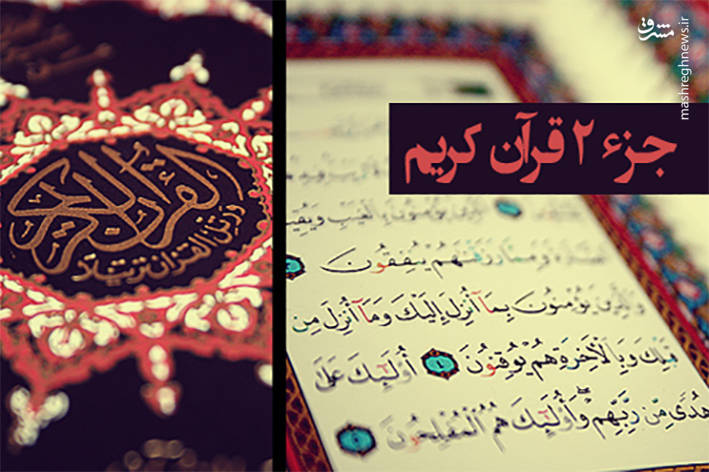 مشرق
mashreghnews.ir
جزء ۲ قرآن کریم
القرآن الكريم
ورتل القرآن ترتيلا
يُؤْمِنُونَ بِالْغَيْبِ
وَمِمَّا رَزَقْنَهُمْ يُنفِقُونَ ٣
وَالَّذِينَ يُؤْمِنُونَ بِمَآ أُنزِلَ إِلَيْكَ وَمَآ أُنزِلَ مِن
قَبْلِكَ وَبِالْأَخِرَةِ هُمْ يُوقِنُونَ ٤ أُوْلَئِكَ عَلَى
هُدًى مِّن رَّبِّهِمْ وَأُوْلَئِكَ هُمُ الْمُفْلِحُونَ ٥